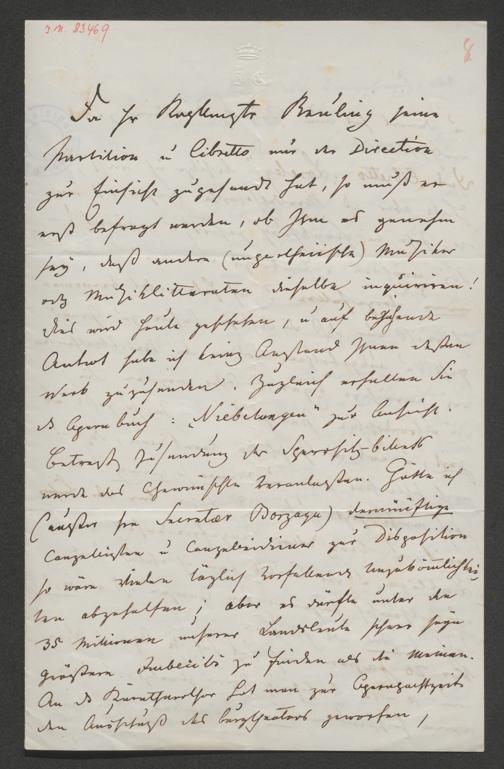 I.N. 83469
8
Da Hr Kapellmstr Reuling seine
Partition u Libretto nur der Direction
zur Einsicht zugesandt hat, so muß er
erst befragt werden, ob Ihm es genehm
sey, daß andere (unparteiische) Musiker
oder Musiklitteraten dieselbe inquiriren!
Dies wird heute geschehen, u auf
Antwort habe ich keinen Anstand Ihnen dessen
Werk zuzusenden. Zugleich erhalten Sie
das Opernbuch: „Niebelungen" zur Ansicht.
Betreffs Zusendung der Sperrsitz-billets
werde das Gewünschte veranlassen. Hätte ich
(außer Secretär Borzaga) vernünftige
Canzellisten u Canzleidiener zur Disposition
so wäre vielen täglich vorfallenden Unzukömmlichkei-
ten abgeholfen; aber es dürfte unter den
35 Millionen unserer Landsleute schwer seyn
größere Imbecils zu finden als die meinen.
An das Kärnthnerthor hat man zur Opernpachtzeit
den Ausschuß des Burgtheaters geworfen,